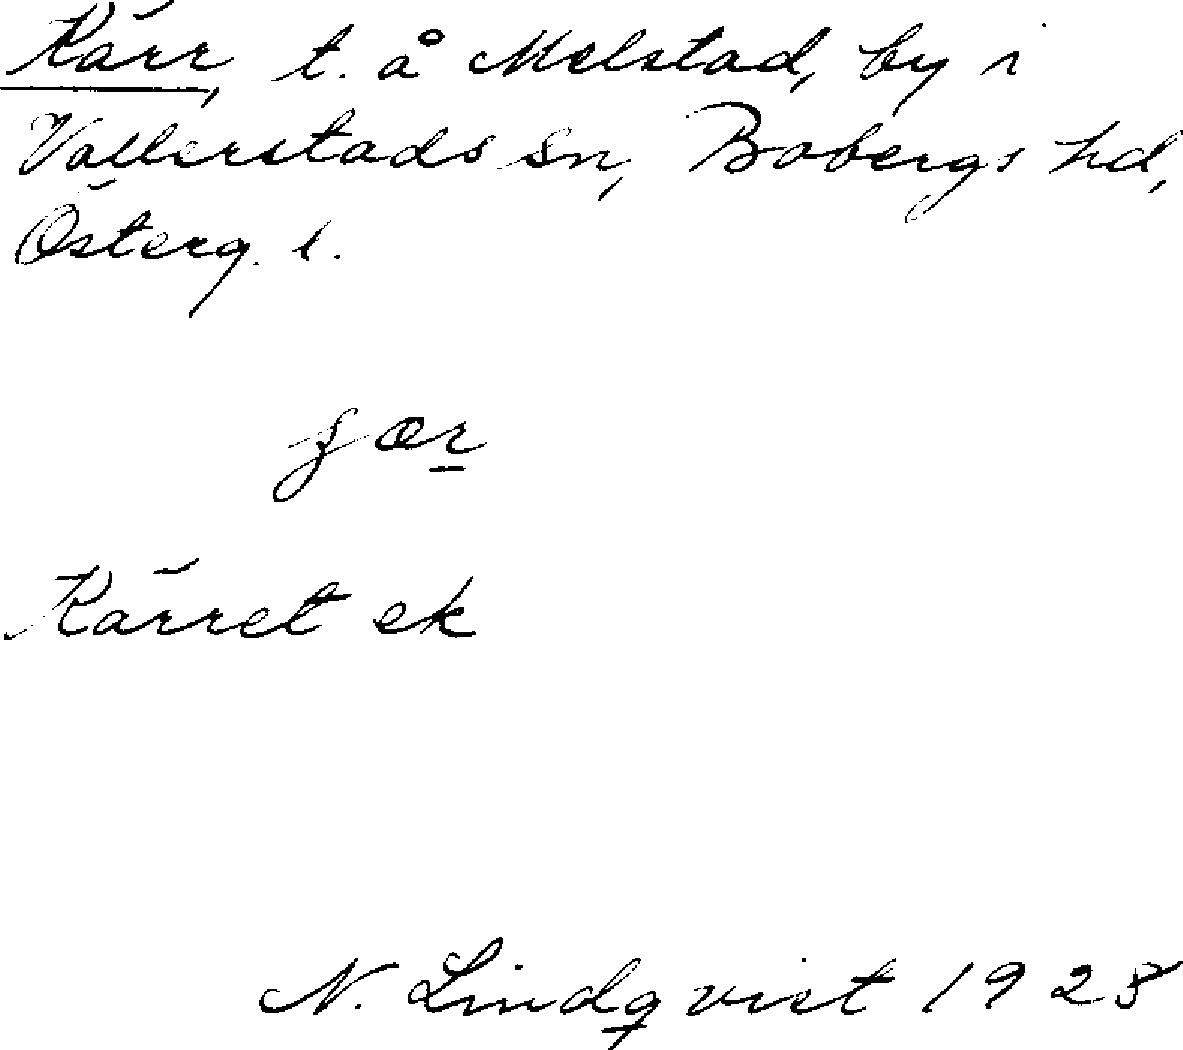 Kärr, t. å Melstad, by i
Vallerstads sn, Bobergs hd,
Österg. l.
ʃær
Kärret ek
N. Lindqvist 1928